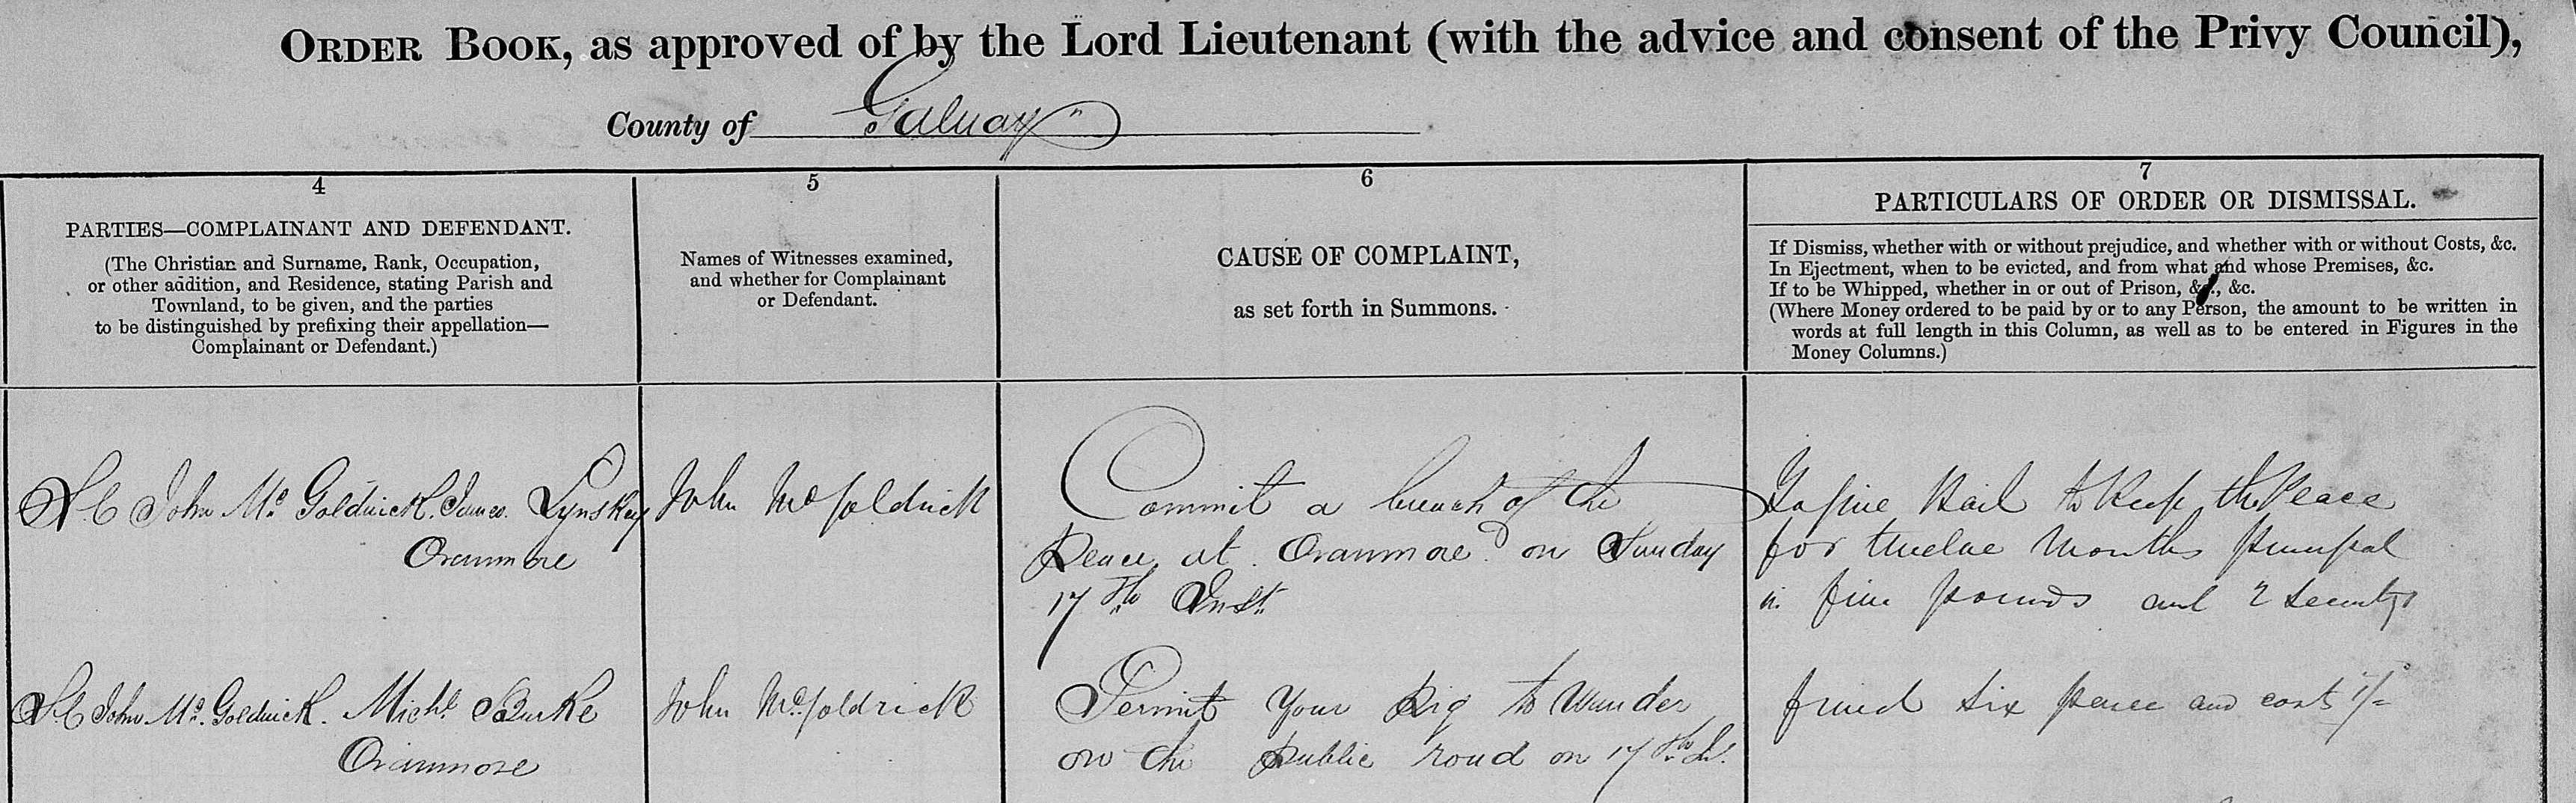 ORDER BOOK, as approved of by the Lord Lieutenant (with the advice and consent of the Privy Council),
County of Galway
4
PARTIES—COMPLAINANT AND DEFENDANT.
(The Christian and Surname, Rank, Occupation,
or other addition, and Residence, stating Parish and
Townland, to be given, and the parties
to be distinguished by prefixing their appellation—
Complainant or Defendant.)
5
Names of Witnesses examined,
and whether for Complainant
or Defendant.
6
CAUSE OF COMPLAINT,
as set forth in Summons.
7
PARTICULARS OF ORDER OR DISMISSAL.
If Dismiss, whether with or without prejudice, and whether with or without Costs, &c.
In Ejectment, when to be evicted, and from what and whose Premises, &c.
If to be Whipped, whether in or out of Prison, &c., &c.
(Where Money ordered to be paid by or to any Person, the amount to be written in
words at full length in this Column, as well as to be entered in Figures in the
Money Columns.)
John Mc Goldrick. James Lynskey
Oranmore
John McGoldrick
Commit a breach of the
Peace at Oranmore on Sunday
17th Inst
To give Bail to Keep the Peace
for twelve Months principal
in five pounds and 2 
John Mc. Goldrick. Michl Burke
Oranmore
John McGoldrick
Permit Your Pig to Wander
on the public road on 17th
fined six pence and costs 1/-